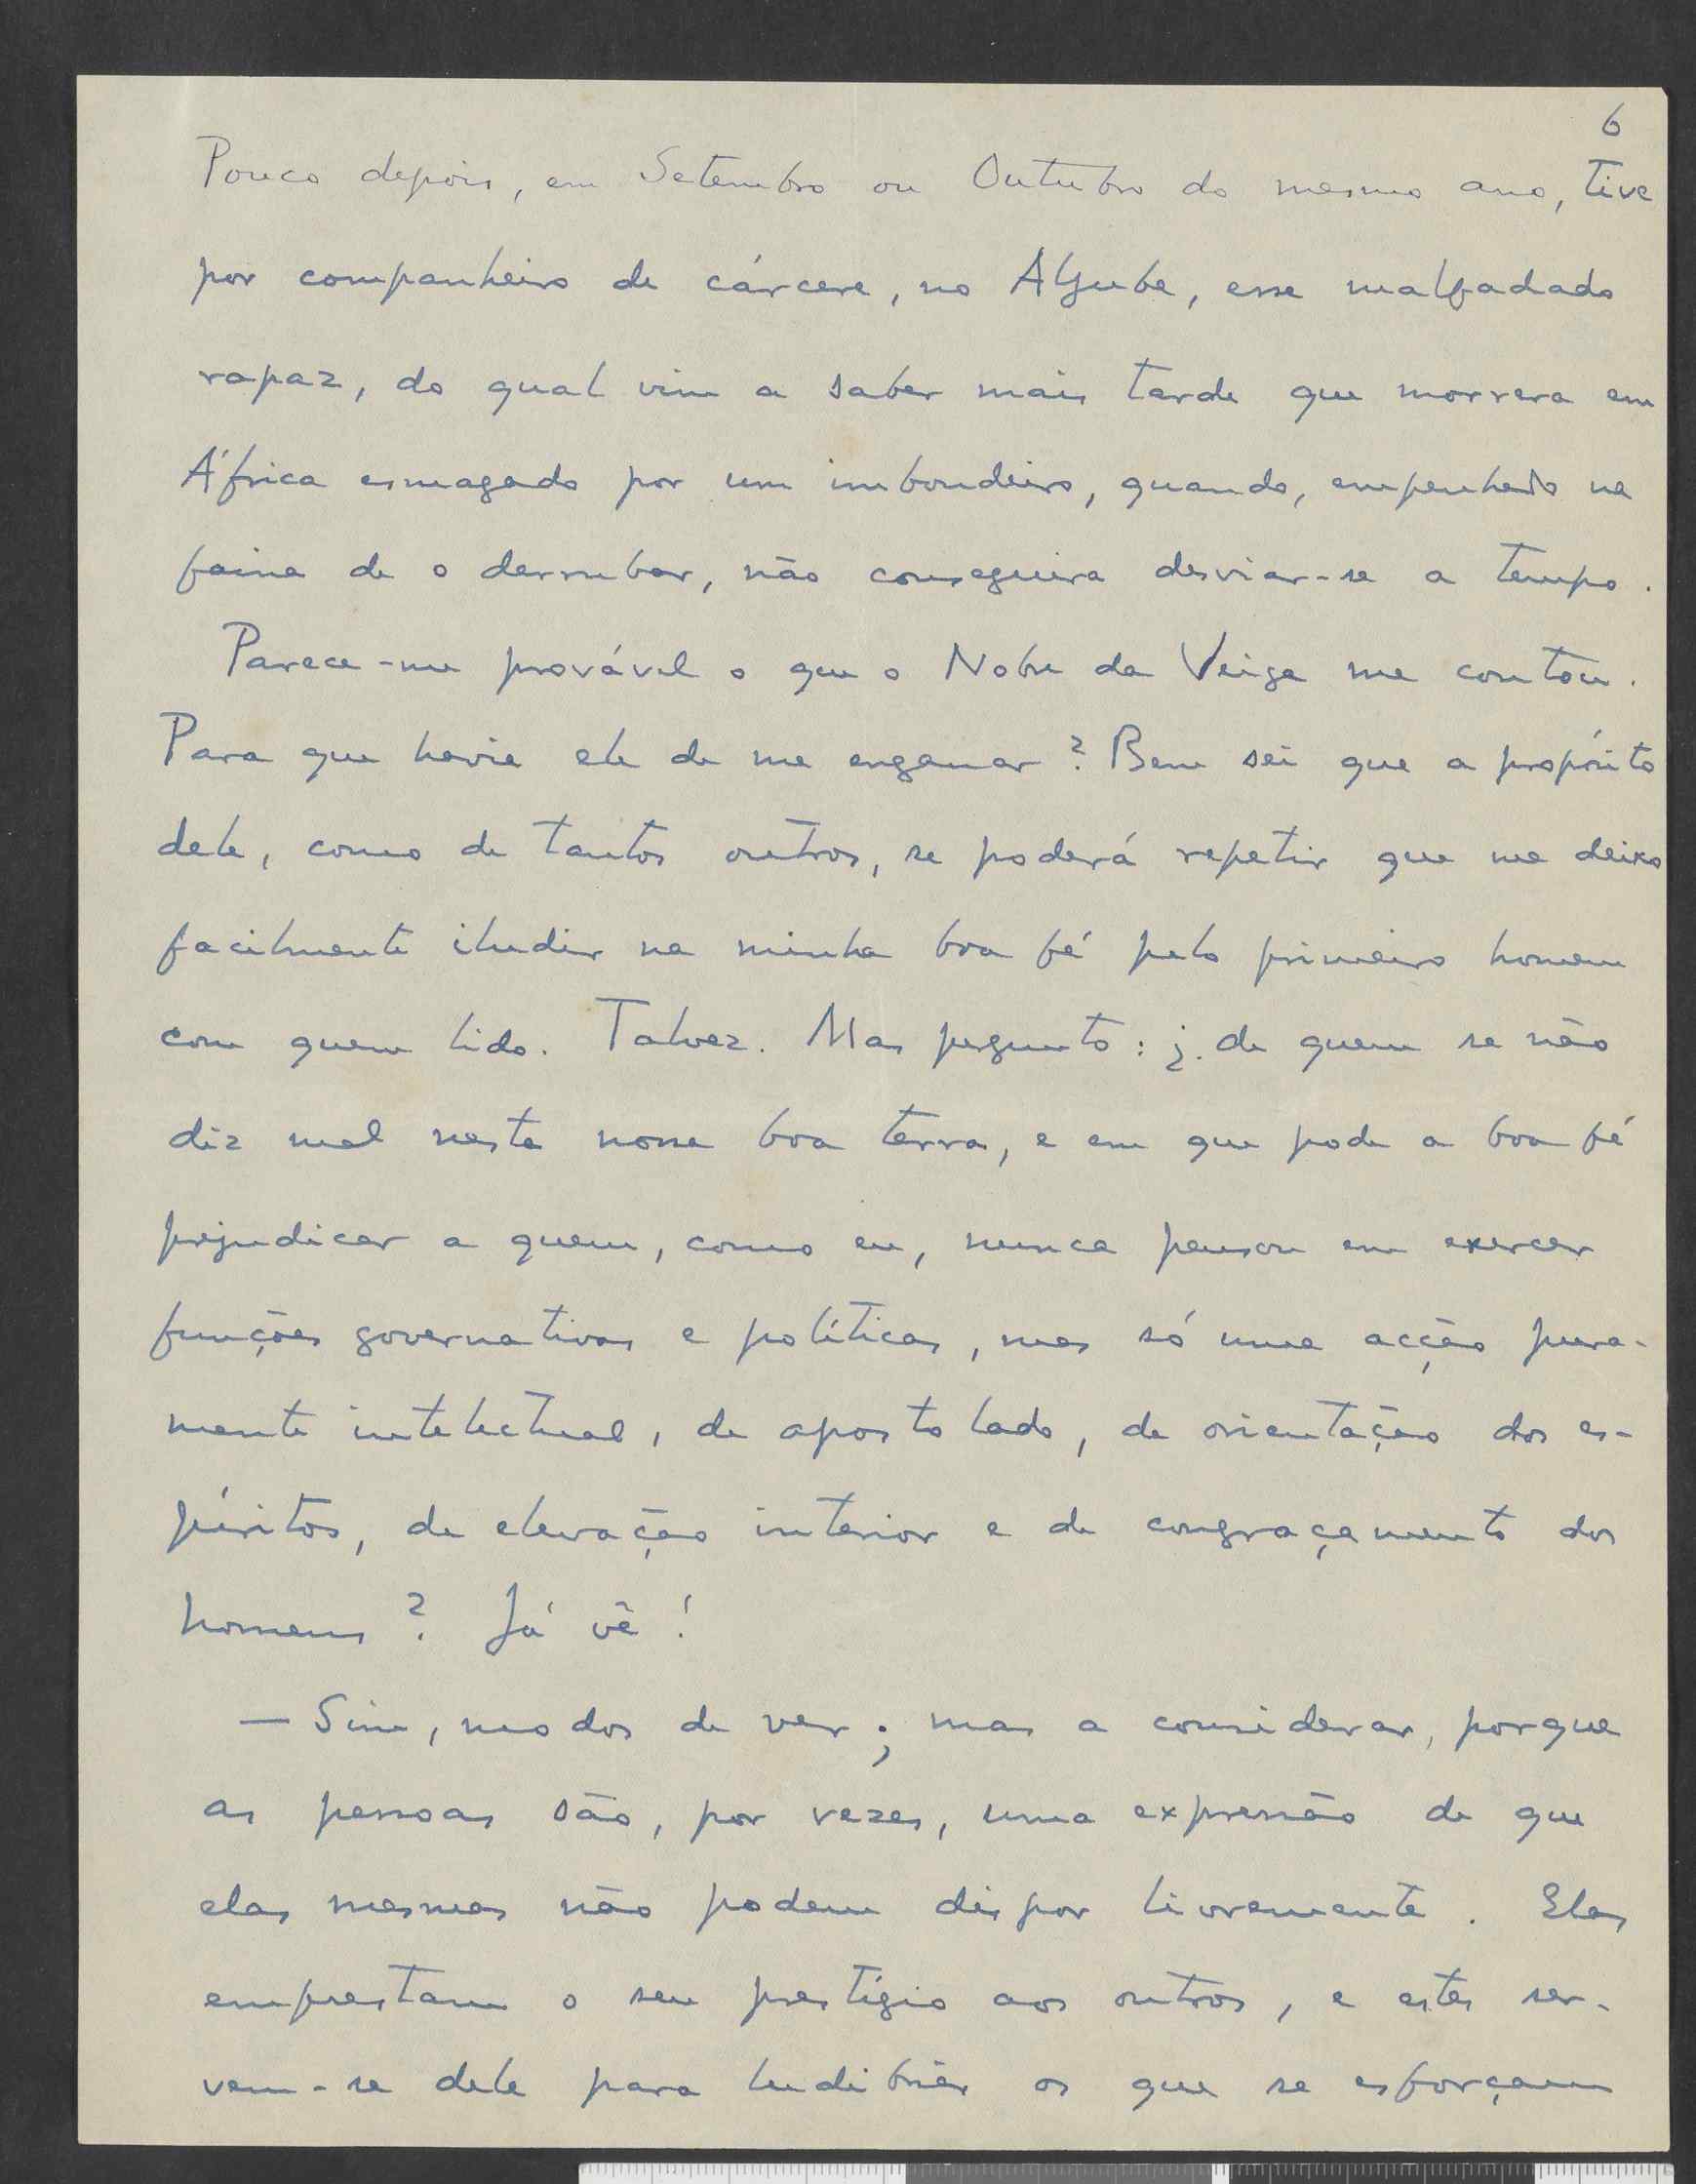 6
Pouco depois, em Setembro ou Outubro do mesmo ano, tive
por companheiro de cárcere, no Aljube, esse malfadado
rapaz, do qual vim a saber mais tarde que morrera em
África esmagado por um imbondeiro, quando, empenhado na
faina de o derrubar, não conseguira desviar-se a tempo.
Parece-me provável o que o Nobre da Veiga me contou.
Para que havia ele de me enganar? Bem sei que a propósito
dele, como de tantos outros, se poderá repetir que me deixo
facilmente iludir na minha boa fé pelo primeiro homem
com quem lido. Talvez. Mas pergunto: ¿de quem se não
diz mal nesta nossa boa terra, e em que pode a boa fé
prejudicar a quem, como eu, nunca pensou em exercer
funções governativas e políticas, mas só uma acção pura-
mente intelectual, de apostolado, de orientação dos es-
píritos, de elevação interior e de congraçamento dos
homens? Já vê!
— Sim, modos de ver; mas a considerar, porque
as pessoas são, por vezes, uma expressão de que
elas mesmas não podem dispor livremente. Elas
emprestam o seu prestígio aos outros, e estes ser-
vem-se dele para ludibriar os que se esforçam